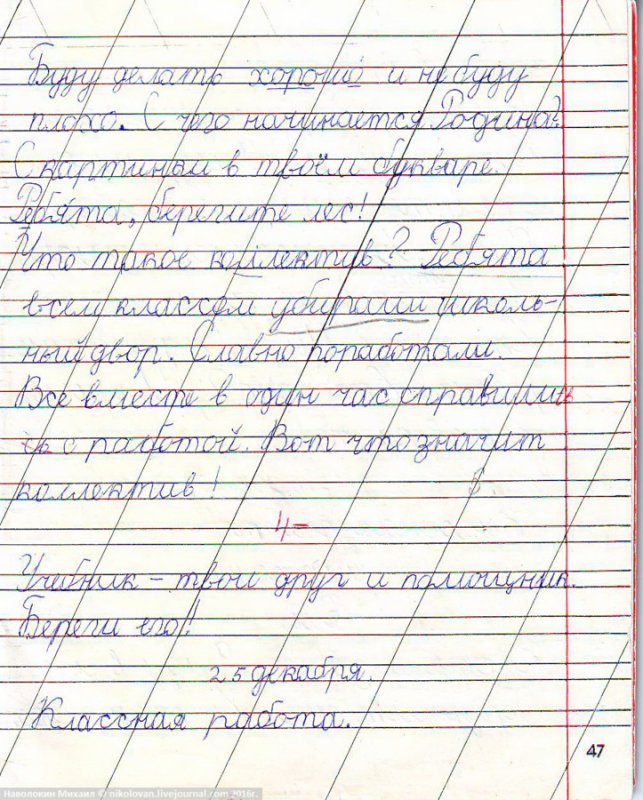 Буду делать хорошо и не буду
плохо. С чего начинается Родина?
С картинки в твоём букваре.
Ребята, берегите лес!
Что такое коллектив? Ребята
всем классом убирали школь-
ный двор. Славно поработали.
Все вместе в один час справились
сь с работой. Вот что значит
коллектив!
4-
Учебник - твой друг и помощник.
Береги его!
25 декабря.
Классная работа.
47
Наволокин Михаил © nikolovan.livejournal.com 2016г.